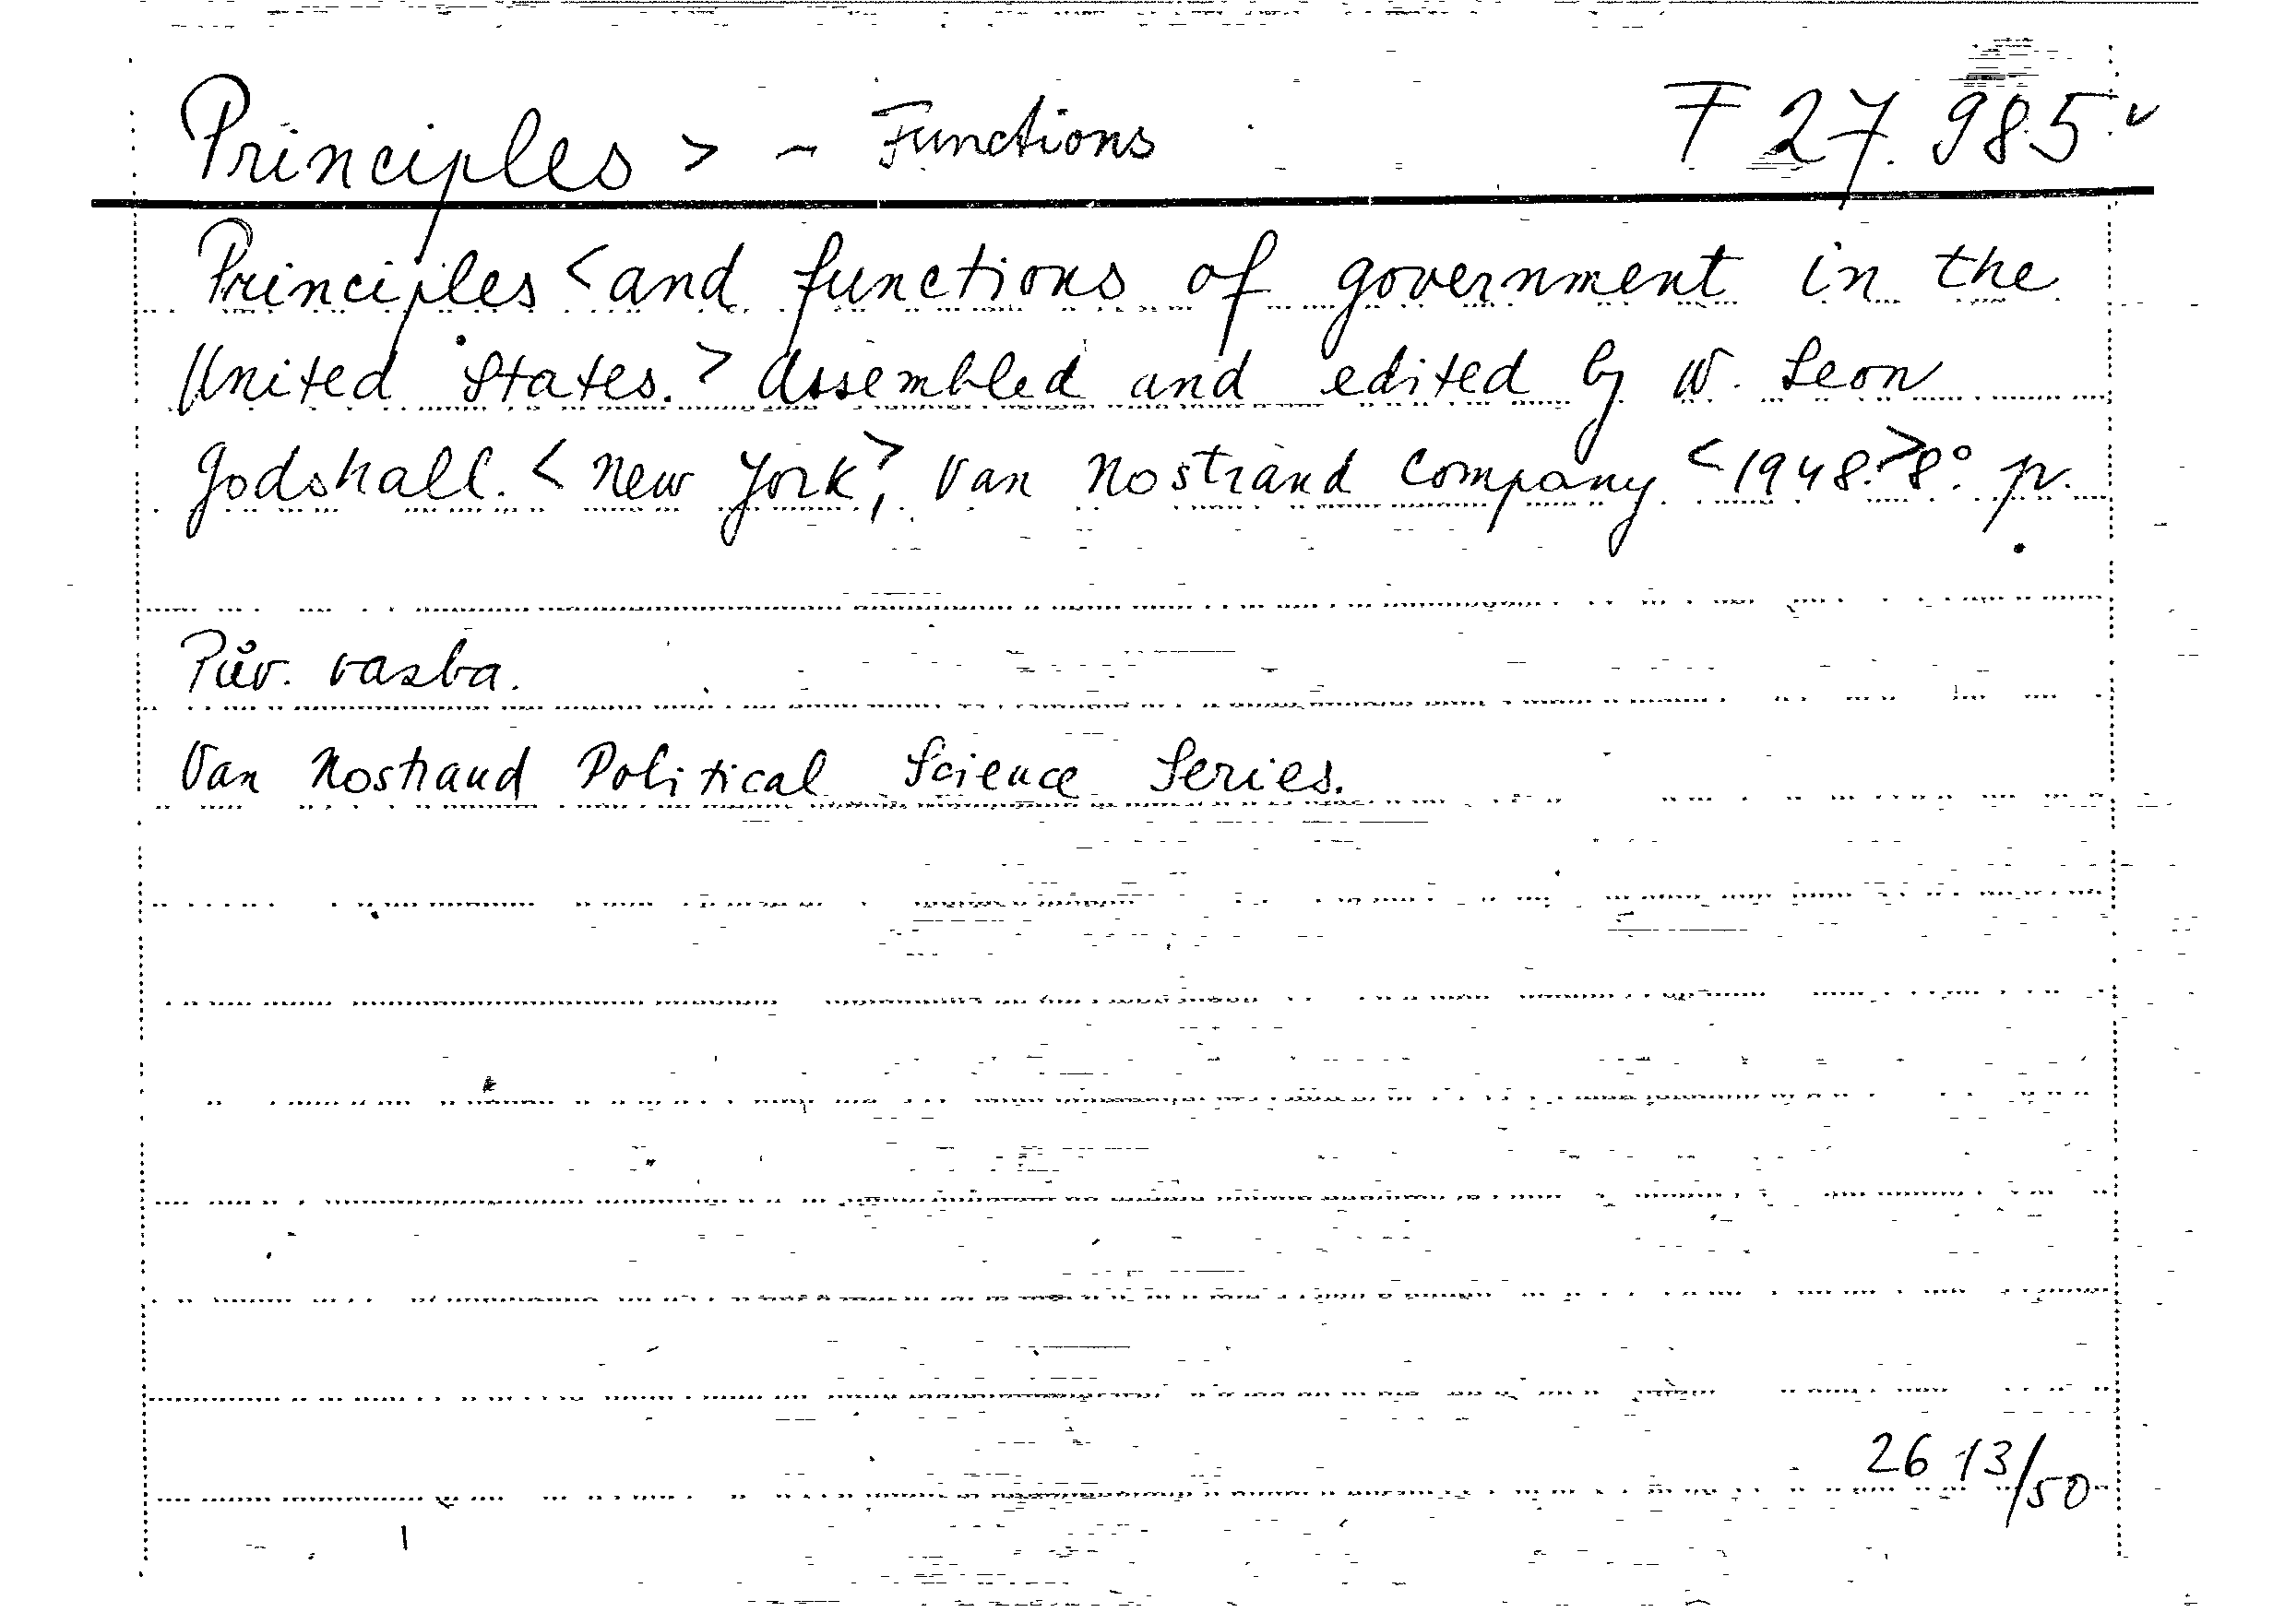 Principles > - Functions F 27.985
Principles < and functions of government in the
United States. > Assembled and edited by W. Leon
Godshall. < New York >, Van Nostrand Company < 1948. > 8° p.
Pův. vazba.
Van Nostrand Political Science Series.
2613/50